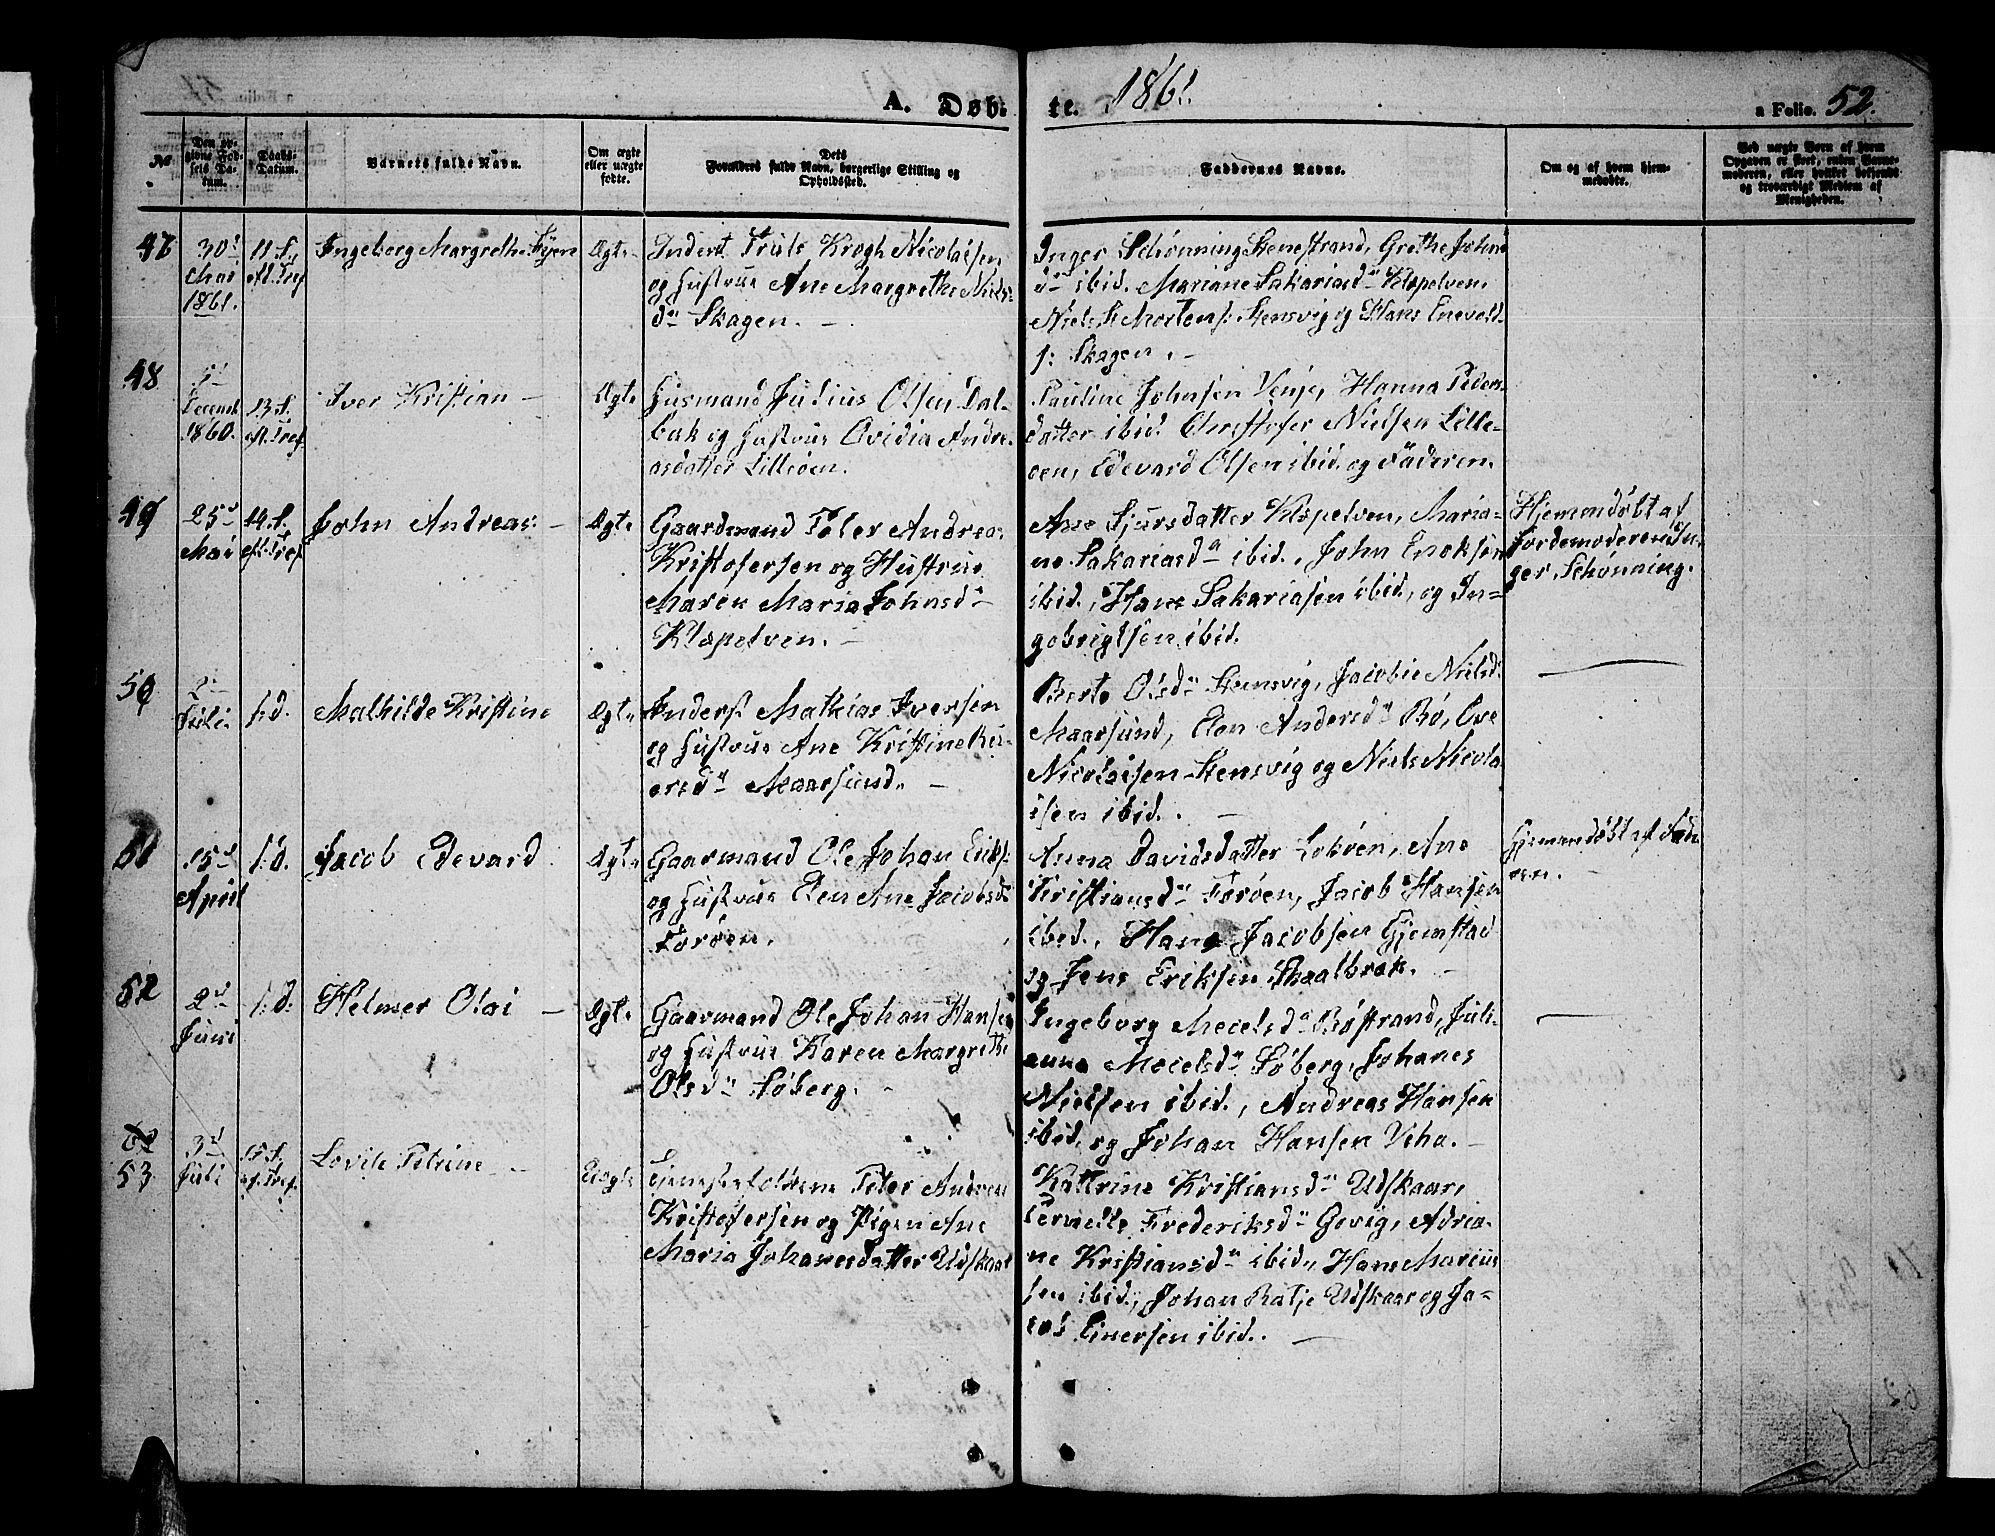 A. Døb-
te. 1861.
a Folio. 52.
No
Den opgivne Fødsels Datum.
Daabs-Datum.
Barnets fulde Navn.
Om ægte eller uægte fødte.
Dets Forældres fulde Navn, borgerlige Stilling og Opholdssted.
Faddernes Navne.
Om og af hvem hjemmedøbte.
Ved uægte Børn af hvem Opgaven er skeet, enten Barnemoderen, eller hvilket bekjendt og troværdigt Medlem af Menigheden.
47
30d
Mai
1861.
11 S.
eft. Tref
Ingeborg Margrethe Fyen
Ægte
Inderst Truls Krogh Nicolaisen
og Hustrue Ane Margrethe Niels-
da Skagen. -
Inger Schønning Stenestrand, Grethe Johns
da ibid. Mariane Sakariasda Kløpelven,
Niels S. Mortens: Stensvig og Hans Enevold-
s: Skagen. -
48
5d
Decemb
1860.
13 S.
eft. Tref.
Iver Kristian -
Ægte
Husmand Julius Olsen Dal-
bak og Hustrue Ovidia Andre-
asdatter Lilleøen.
Pauline Johnsen Venje, Hanna Peders-
datter ibid. Christofer Nielsen Lille-
øen, Edevard Olsen ibid. og Faderen.
49
25d
Mai
14. S.
eft. Tref
John Andreas. -
Ægte
Gaardmand Peter Andreas
Kristofersen og Hustrue
Maren Maria Johnsda
Kløpelven. -
Ane Sjursdatter Kløpelven, Maria-
ne Sakariasda ibid., John Enoksen
ibid., Hans Sakariasen ibid., og In-
gebrigtsen ibid.
Hjemmedøbt af
Jordemoderen In-
ger Schønning.
50
2d
Juli
s: d.
Mathilde Kristine
Ægte
Inderst Mathias Iversen
og Hustrue Ane Kristine
ersda Maarsund. -
Berte Olsda Stensvig, Jacobie Nielsd:
Maarsund, Elen Andersda Bø, Ove
Nicolaisen Stensvig og Niels Nicola-
isen ibid. -
51
15d
April
s: d.
Jacob Edevard
Ægte
Gaarmand Ole Johan Eriks:
og Hustrue Elen Ane Jacobsda
Forøen.
Anna Davidsdatter Lokøen, Ane
Kristiansda Forøen, Jacob Hansen
ibid., Hans Jacobsen Gjemstad
og Jens Eriksen Skaalbrak. -
Hjemmedøbt af Fade-
ren.
52
2d
Juni
s: d.
Helmer Olai -
Ægte
Gaarmand Ole Johan Hansen
og Hustrue Karen Margrethe
Olsda Søberg. -
Ingeborg Mecelsda Bøstrand, Juli-
anna Mecelsda Søberg, Johanes
Nielsen ibid., Andreas Hansen
ibid. og Johan Hansen Veha. -
53
3d
Juli
15 S.
ef. Tref.
Lovise Petrine -
Uægte
Peter Andreas
Kristofersen og Pigen Ane
Maria Johanesdatter Udskaar
Kattrine Kristiansda Udskaar,
Pernelle Frederiksda Govig, Adria-
ne Kristiansda ibid., Hans Marius-
sen ibid., Johan Ratje Udskaar og Ja-
cob Einersen ibid. -